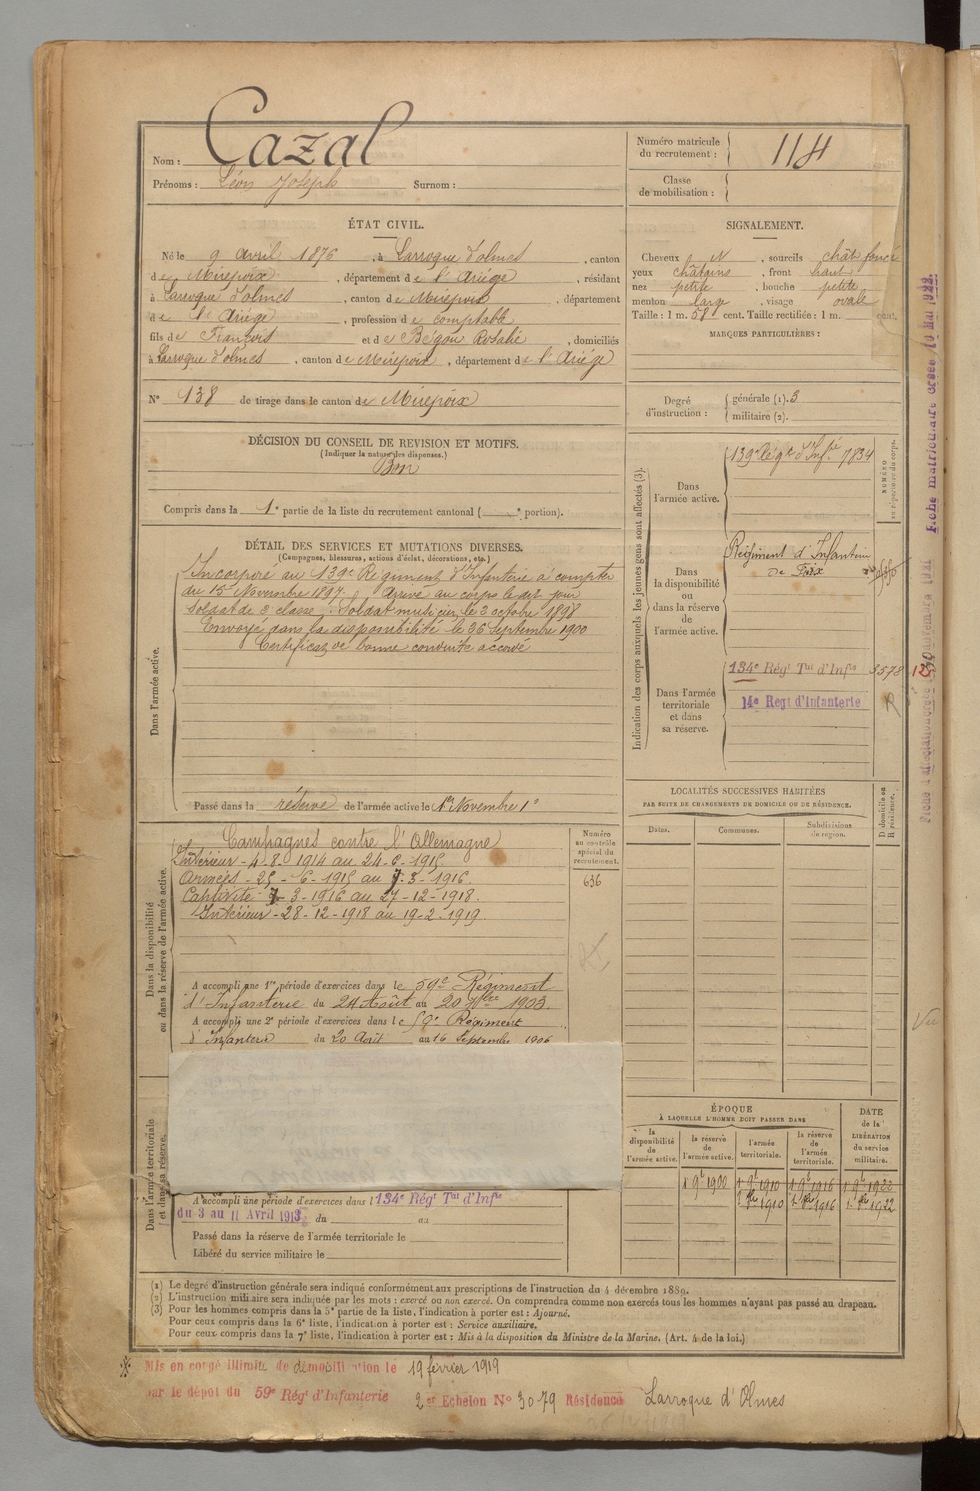 Nom : Cazal
Prénoms : Léon Joseph Surnom :
Numéro matricule du recrutement : 114
Classe de mobilisation :
ÉTAT CIVIL.
Né le 9 avril 1876, à Larroque d'olmes, canton
de Mirepoix, département de l'Ariège, résidant
à Larroque d'olmes, canton de Mirepoix, département
de l'Ariège, profession de comptable
fils de François et de Bégou Rosalie, domiciliés
à Larroque d'olmes, canton de Mirepoix, département de l'Ariège
N° 138 de tirage dans le canton de Mirepoix
SIGNALEMENT.
Cheveux N, sourcils chât foncé
yeux châtains, front haut
nez petite, bouche petite
menton large, visage ovale
Taille : 1 m. 58 cent. Taille rectifiée : 1 m. cent.
MARQUES PARTICULIÈRES :
Degré d'instruction : générale (1). 3
militaire (2).
DÉCISION DU CONSEIL DE REVISION ET MOTIFS.
(Indiquer la nature des dispenses.)
Bon
Compris dans la 1e partie de la liste du recrutement cantonal ( e portion).
DÉTAIL DES SERVICES ET MUTATIONS DIVERSES.
(Campagnes, blessures, actions d'éclat, décorations, etc.)
Dans l'armée active.
Incorporé au 139e Régiment d'Infanterie à compter
du 15 Novembre 1897. Arrivé au corps le dit jour
Soldat de 2 classe. Soldat musicien le 2 octobre 1898
Envoyé dans la disponibilité le 26 Septembre 1900
Certificat de bonne conduite accordé
Passé dans la réserve de l'armée active le 1er Novembre 1
Indication des corps auxquels les jeunes gens sont affectés (3).
NUMÉRO au répertoire du corps.
Dans l'armée active.
139e Régt d'Infie 7834
Dans la disponibilité ou dans la réserve de l'armée active.
Régiment d'Infanterie
de Foix
Dans l'armée territoriale et dans sa réserve.
134e Régt Tal d'Infie 3578
14e Regt d'Infanterie
LOCALITÉS SUCCESSIVES HABITÉES
PAR SUITE DE CHANGEMENTS DE DOMICILE OU DE RÉSIDENCE.
Dates. Communes. Subdivisions de region. D domicile ou R résidence.
Dans la disponibilité ou dans la réserve de l'armée active.
Campagnes contre l'Allemagne
Intérieur - 4-8-1914 au 24-6-1915.
Armées - 25-6-1915 au 7-3-1916.
Captivité 7-3-1916 au 27-12-1918.
Intérieur - 28-12-1918 au 19-2-1919.
Numéro au contrôle spécial du recrutement.
636
A accompli une 1re période d'exercices dans le 59e Régiment
d'Infanterie du 24 Août au 20 7bre 1903.
A accompli une 2e période d'exercices dans le 59e Régiment
d'Infanterie du 20 Août au 16 Septembre 1906
Dans l'armée territoriale et dans sa réserve.
A accompli une période d'exercices dans l 134e Régt Tal d'Infie
du 3 au 11 Avril 1913 du au
Passé dans la réserve de l'armée territoriale le
Libéré du service militaire le
ÉPOQUE
À LAQUELLE L'HOMME DOIT PASSER DANS
DATE de la LIBÉRATION du service militaire.
la disponibilité de l'armée active. la réserve de l'armée active. l'armée territoriale. la réserve de l'armée territoriale.
1 9b 1900 1 9b 1910 1 9b 1916 1 9b 1922
1910 1916 1922
(1) Le degré d'instruction générale sera indiqué conformément aux prescriptions de l'instruction du 4 décembre 1889.
(2) L'instruction militaire sera indiquée par les mots : exercé ou non exercé. On comprendra comme non exercés tous les hommes n'ayant pas passé au drapeau.
(3) Pour les hommes compris dans la 5e partie de la liste, l'indication à porter est : Ajourné.
Pour ceux compris dans la 6e liste, l'indication à porter est : Service auxiliaire.
Pour ceux compris dans la 7e liste, l'indication à porter est : Mis à la disposition du Ministre de la Marine. (Art. 4 de la loi.)
Mis en congé illimité de démobilisation le 19 février 1919
par le dépôt du 59e Rég d'Infanterie 2e Echelon N° 3079 Résidence Larroque d'Olmes
Fiche matriculaire créée 10 Mai 1922
Vu